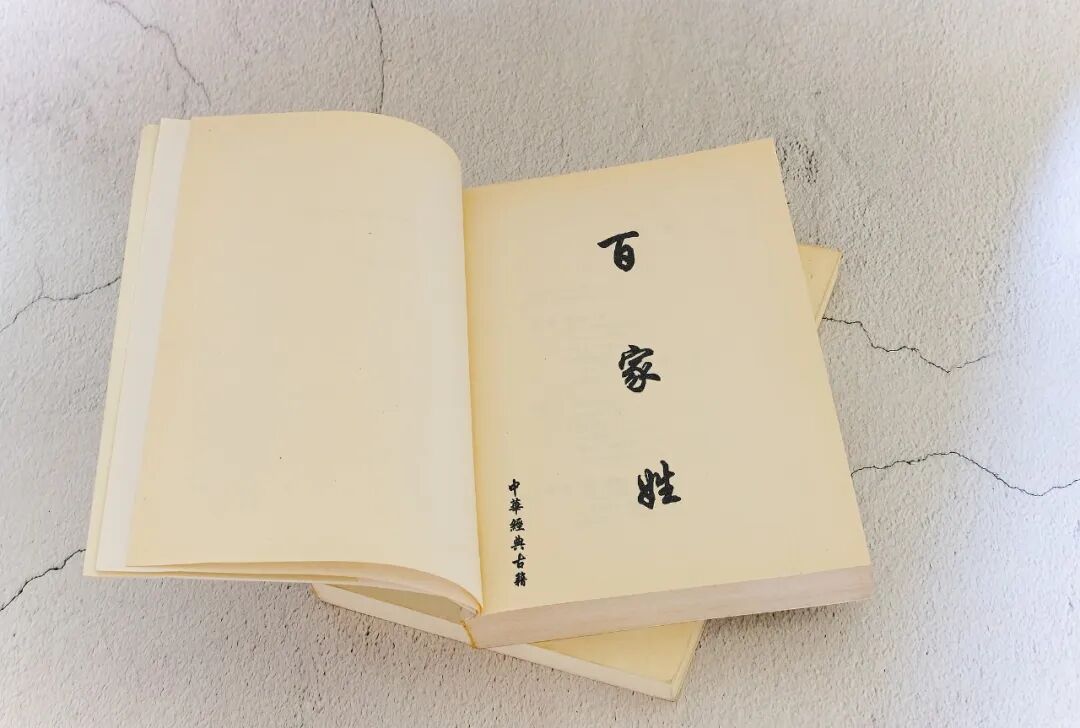 百家姓
中華經典古籍